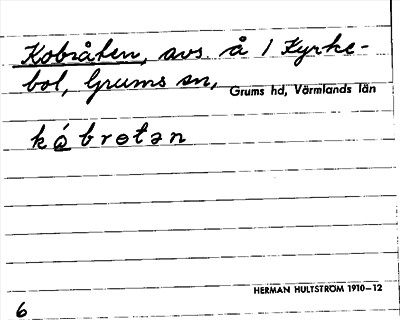 Kobråten, avs. å 1 Kyrke-
bol, Grums sn,
Grums hd, Värmlands län
kǻbretən
HERMAN HULTSTRÖM 1910–12
6